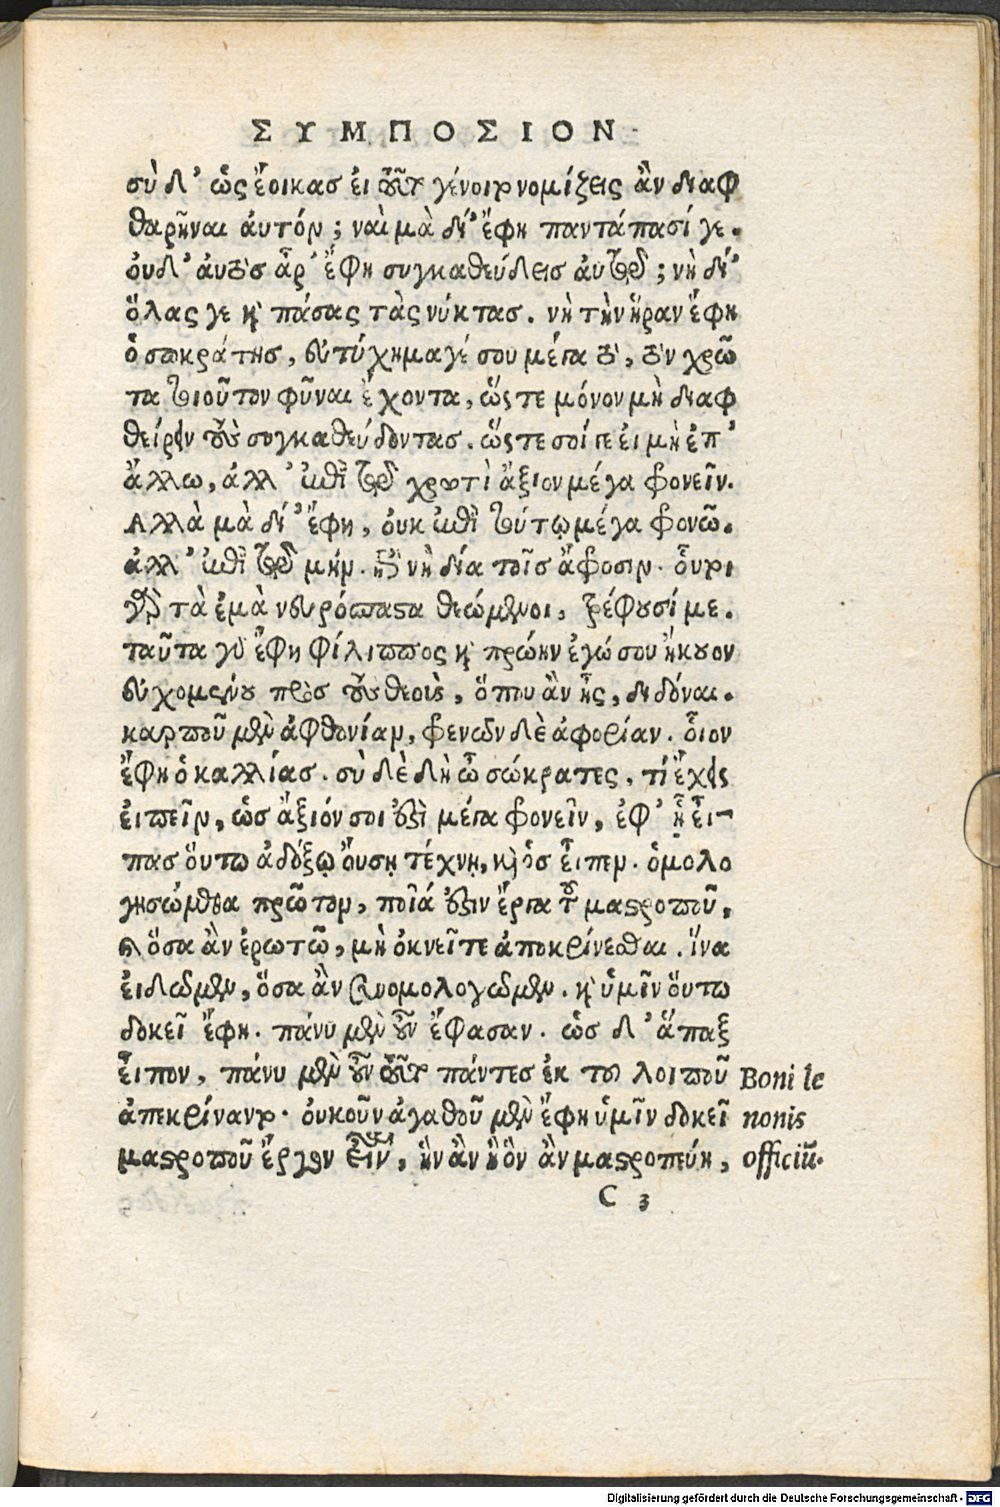 ΣΥΜΠΟΣΙΟΝ
σὺ δ' ὡς ἔοικας εἰ τοῦτο γένοιτο νομίζεις ἂν διαφ
θαρῆναι ἀυτόν; ναὶ μὰ δί' ἔφη παντάπασί γε.
ὀυδ' ἀυτὸς ἆρ' ἔφη συγκαθεύδεις ἀυτῷ; νὴ δί'
ὅλας γε καὶ πάσας τὰς νύκτας. νὴ τὴν ἥραν ἔφη
ὁ σωκράτης, ἐυτύχημα γέ σου μέγα τὸ, τὸν χρῶ
τα τοιοῦτον φῦναι ἔχοντα, ὥστε μόνον μὴ διαφ
θείρειν τοὺς συγκαθεύδοντας. ὥστε σοί γε ἐι μὴ ἐπ'
ἄλλω, ἀλλ' ἐπὶ τῷ χρωτὶ ἄξιον μέγα φρονεῖν.
Ἀλλὰ μὰ δί' ἔφη, ὀυκ ἐπὶ τούτῳ μέγα φρονῶ.
ἀλλ' ἐπὶ τῷ μήν. ἐπὶ νὴ δία τοῖς ἄφροσιν. οὗτοι
γὰρ τὰ ἐμὰ νευρόσπαστα θεώμενοι, τρέφουσί με.
ταῦτα γὰρ ἔφη φίλιππος καὶ πρώην ἐγώ σου ἤκουον
ἐυχομένου πρὸς τοὺς θεοὺς, ὅπου ἂν ᾖς, διδόναι.
καρποῦ μὲν ἀφθονίαν, φρενῶν δὲ ἀφορίαν. οἷον
ἔφη ὁ καλλίας. σὺ δὲ δὴ ὦ σώκρατες, τί ἔχεις
ἐιπεῖν, ὡς ἄξιόν σοι ἐστὶ μέγα φρονεῖν, ἐφ' ᾗ εἶ-
πας ὅυτω ἀδόξῳ ὄυσῃ τέχνῃ, καὶ ὃς εἶπεν. ὁμολο
γησώμεθα πρῶτον, ποῖά ἐστιν ἔργα τοῦ μαστροποῦ,
καὶ ὅσα ἂν ἐρωτῶ, μὴ ὀκνεῖτε ἀποκρίνεσθαι. ἵνα
ἐιδῶμεν, ὅσα ἂν συνομολογῶμεν. καὶ ὑμῖν ὅυτω
δοκεῖ ἔφη. πάνυ μὲν οὖν ἔφασαν. ὡς δ' ἅπαξ
εἶπον, πάνυ μὲν οὖν τοῦτο πάντες ἐκ τοῦ λοιποῦ
ἀπεκρίναντο. ὀυκοῦν ἀγαθοῦ μὲν ἔφη ὑμῖν δοκεῖ
μαστροποῦ ἔργον εἶναι, ἣν ἂν ἢ ὃν ἂν μαστροπεύῃ,
Boni le
nonis
officiū.
C 3
Digitalisierung gefördert durch die Deutsche Forschungsgemeinschaft - DFG